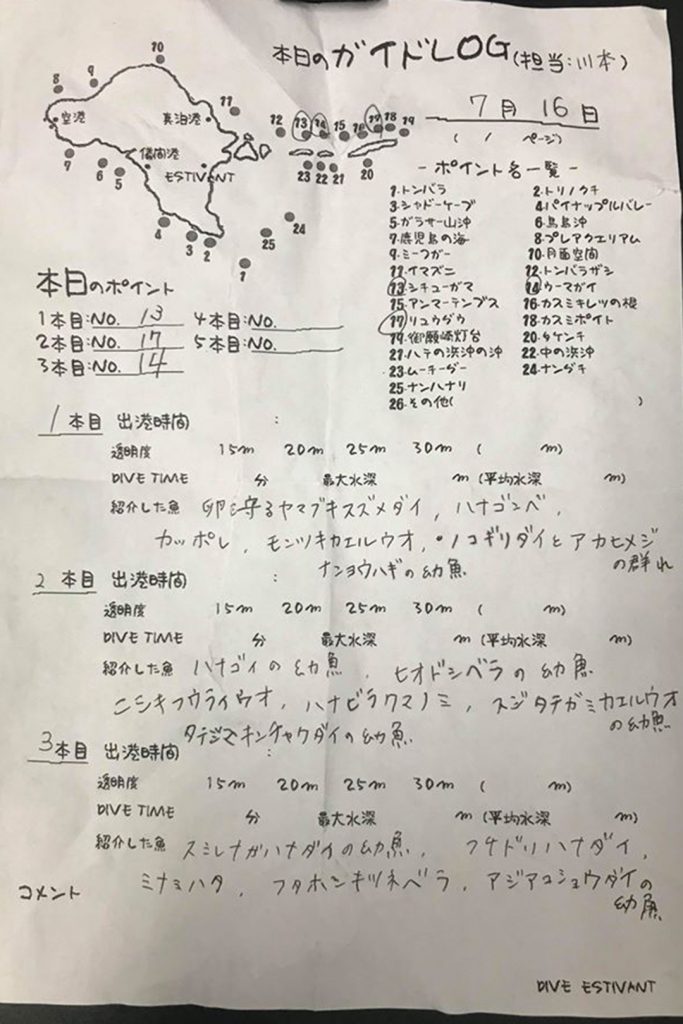 本日のガイドLOG(担当:川本)
7月 16日
( / ページ)
10
8 9
空港 真泊港 11
儀間港
ESTIVANT
7 6 5
4 3 2 1 25 24
12 13 14 15 16 17 18 19
23 22 21 20
-ポイント名一覧-
1.トンバラ 2.トリノクチ
3.シャドーケーブ 4.パイナップルバレー
5.ガラサー山沖 6.鳥島沖
7.鹿児島の海 8.プレアクエリアム
9.ミーフガー 10.月面空間
11.イマズニ 12.トンバラザシ
13.シチューガマ 14.ウーマガイ
15.アンマーテンプス 16.カスミキレツの根
17.リュウグウ 18.カスミポイント
19.御願崎灯台 20.タケンチ
21.ハテの浜沖の沖 22.中の浜沖
23.ムーチーグー 24.ナンダキ
25.ナンハナリ
26.その他( )
本日のポイント
1本目:NO. 13 4本目:NO.
2本目:NO. 17 5本目:NO.
3本目:NO. 14
1本目 出港時間 :
透明度 15m 20m 25m 30m ( m)
DIVE TIME 分 最大水深 m (平均水深 m)
紹介した魚 卵を守るヤマブキスズメダイ, ハナゴンベ,
カッポレ, モンツキカエルウオ, ノコギリダイとアカヒメジの群れ
ナンヨウハギの幼魚
2本目 出港時間 :
透明度 15m 20m 25m 30m ( m)
DIVE TIME 分 最大水深 m (平均水深 m)
紹介した魚 ハナゴイの幼魚, ヒオドシベラの幼魚
ニシキフウライウオ, ハナビラクマノミ, スジタテガミカエルウオの幼魚
タテジマキンチャクダイの幼魚
3本目 出港時間 :
透明度 15m 20m 25m 30m ( m)
DIVE TIME 分 最大水深 m (平均水深 m)
紹介した魚 スミレナガハナダイの幼魚, フチドリハナダイ,
ミナミハタ, フタホシキツネベラ, アジアコショウダイの幼魚
コメント
DIVE ESTIVANT